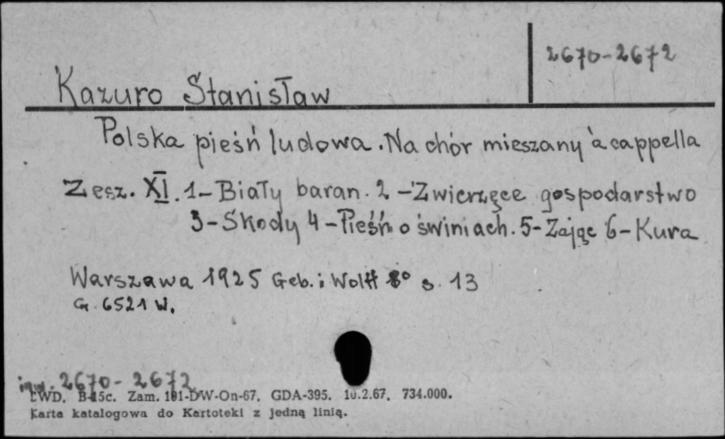 2670-2672
Kazuro Stanisław
Polska pieśń ludowa. Na chór mieszany à cappella
Zesz. XI. 1-Biały baran. 2-Zwierzęce gospodarstwo
3-Skody 4-Pieśń o świniach. 5-Zając 6-Kura
Warszawa 1925 Geb. i Wolff 8° s. 13
G. 6521 W.
inw. 2670-2672
LWD. B-15c. Zam. 191-DW-On-67. GDA-395. 10.2.67. 734.000.
Karta katalogowa do Kartoteki z jedną linią.